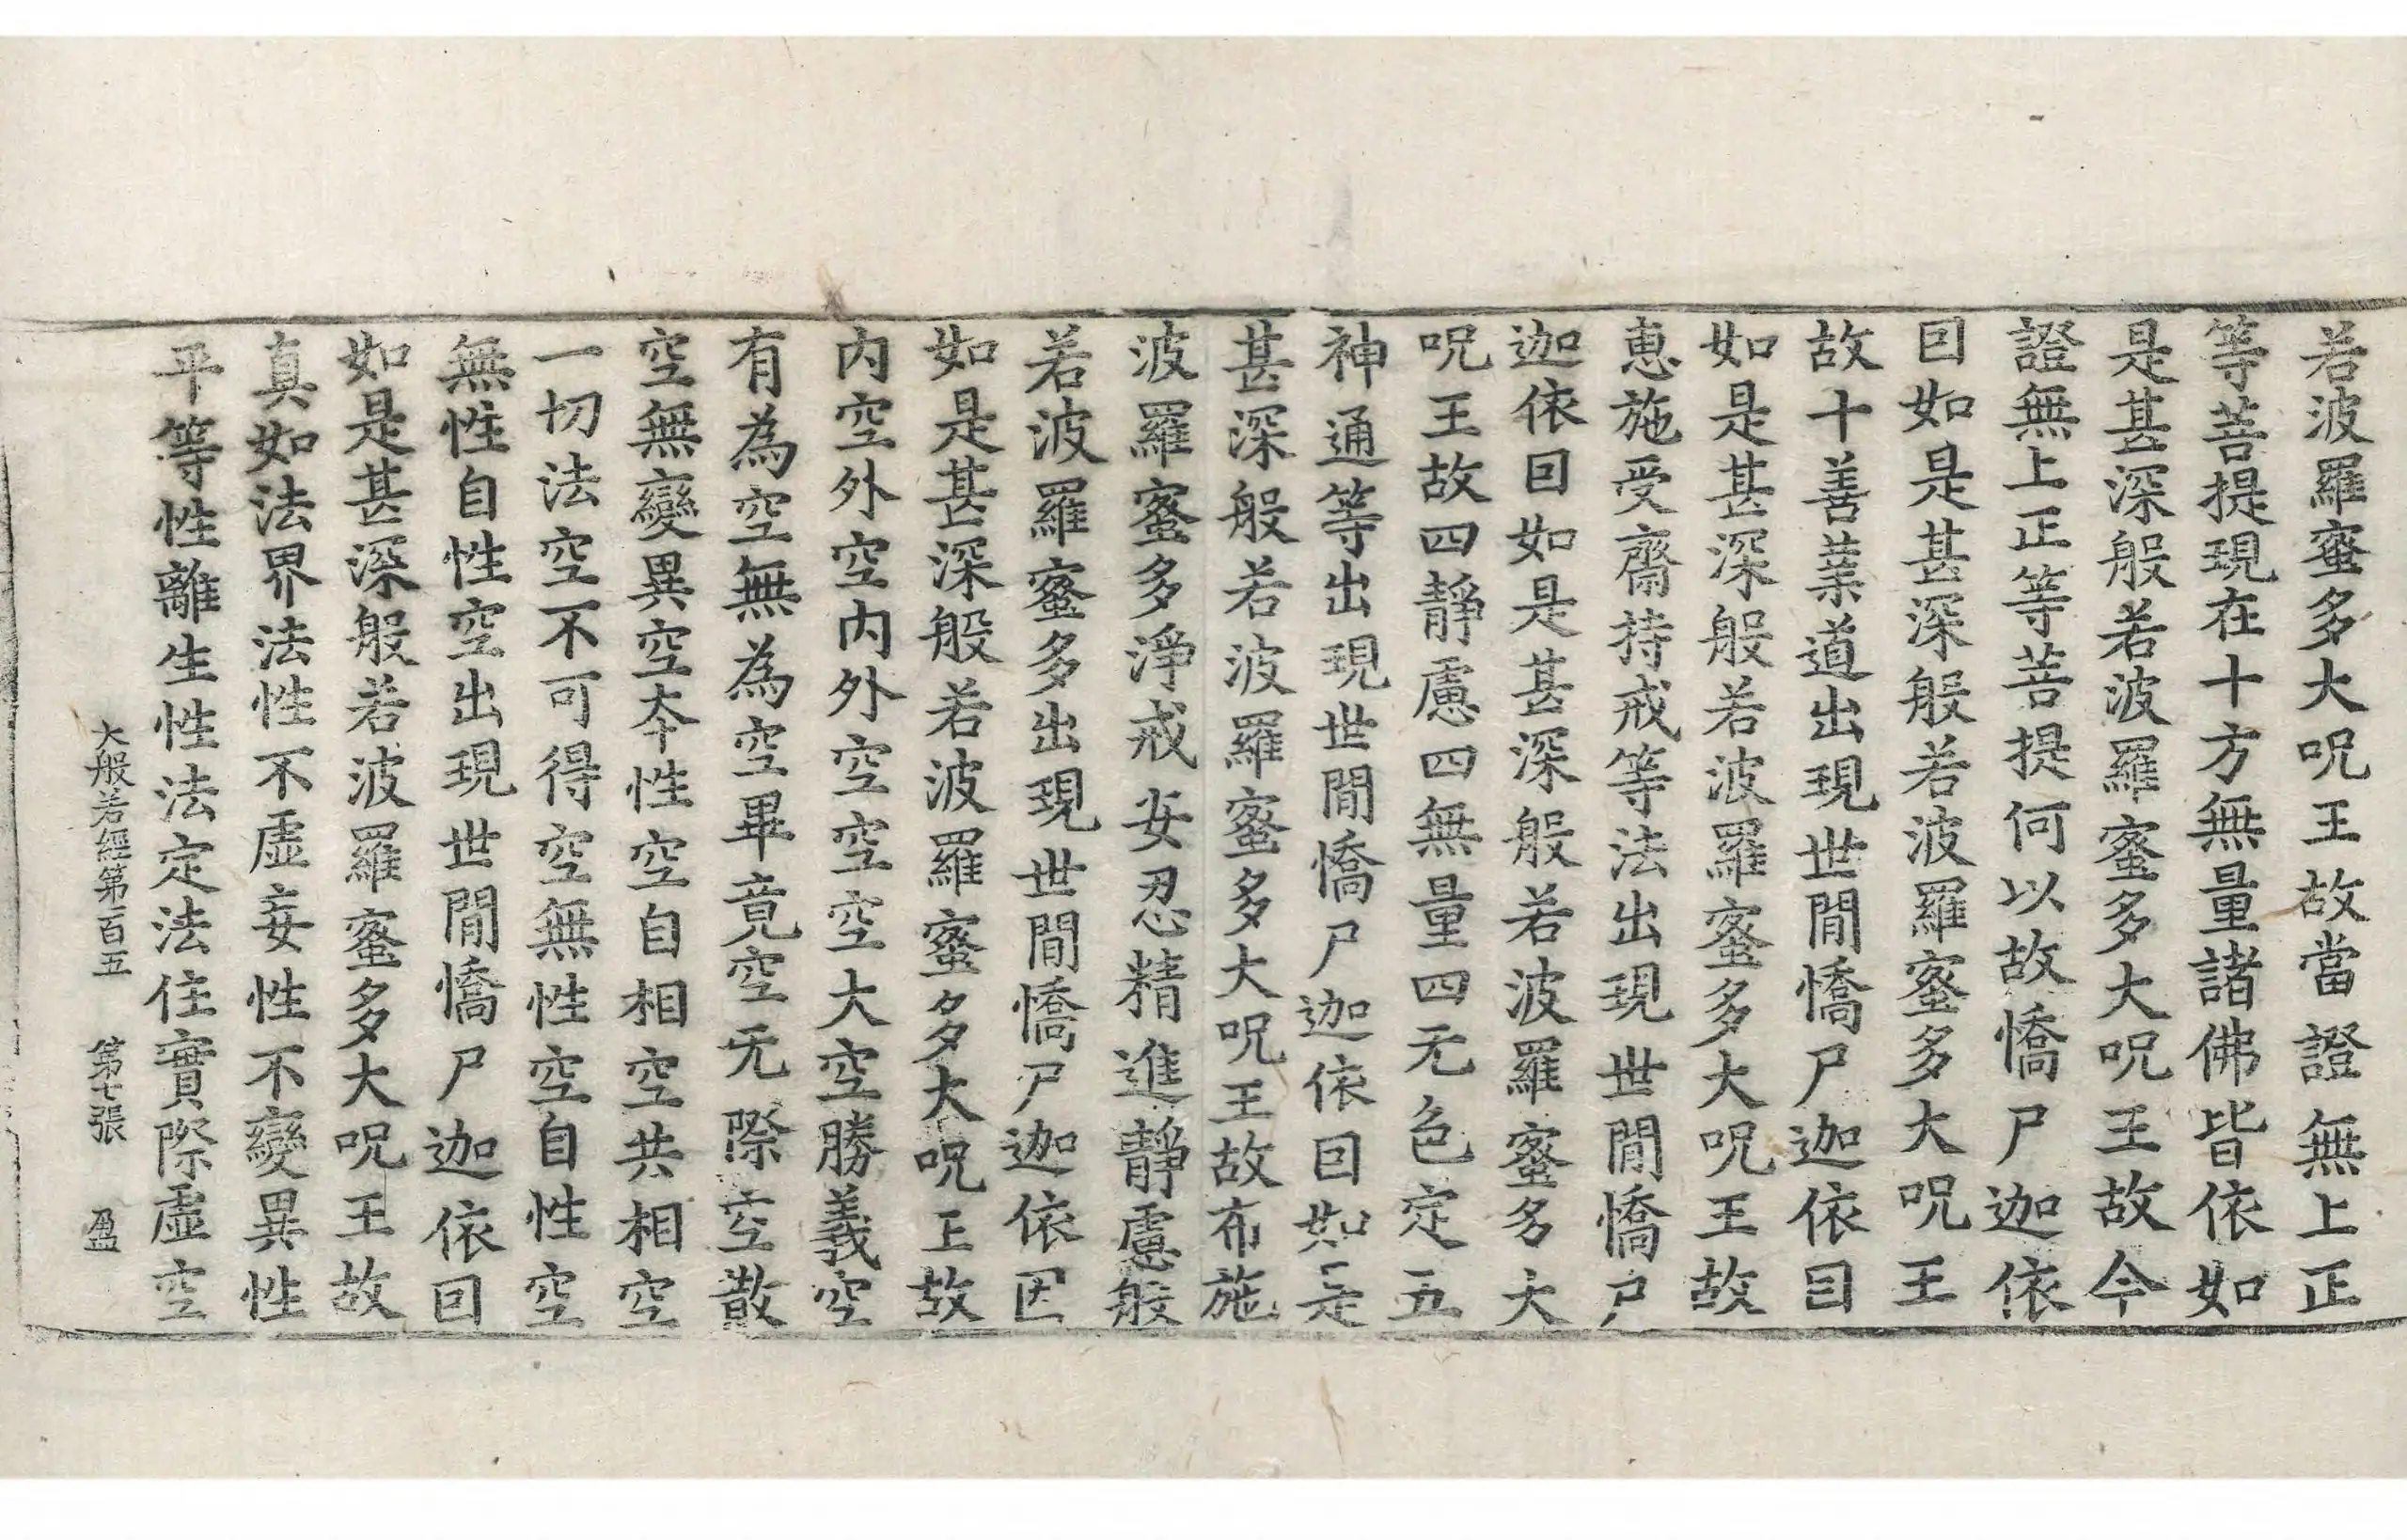 若波羅蜜多大呪王故當證無上正
等菩提現在十方無量諸佛皆依如
是甚深般若波羅蜜多大呪王故今
證無上正等菩提何以故憍尸迦依
囙如是甚深般若波羅蜜多大呪王
故十善業道出現世間憍尸迦依囙
如是甚深般若波羅蜜多大呪王故
惠施受齋持戒等法出現世間憍尸
迦依囙如是甚深般若波羅蜜多大
呪王故四靜慮四無量四无色定五
神通等出現世間憍尸迦依囙如是
甚深般若波羅蜜多大呪王故布施
波羅蜜多淨戒安忍精進靜慮般
若波羅蜜多出現世間憍尸迦依因
如是甚深般若波羅蜜多大呪王故
內空外空內外空空空大空勝義空
有為空無為空畢竟空无際空散
空無變異空夲性空自相空共相空
一切法空不可得空無性空自性空
無性自性空出現世間憍尸迦依囙
如是甚深般若波羅蜜多大呪王故
真如法界法性不虛妄性不變異性
平等性離生性法定法住實際虛空
大般若經第一百五 第七張 盈